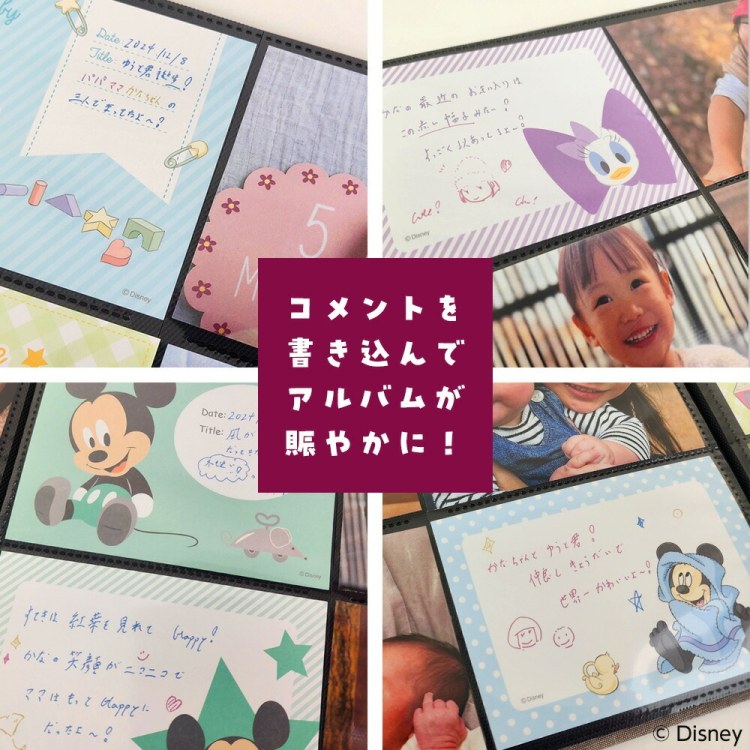 Date: 2024/12/8
Title: ゆうと君誕生!
パパママかなちゃんの
三人で まってたよ〜?
© Disney
5
M
かなの 最近の お気に入りは
この赤い帽子みたい!
すっごく似あってるよ〜!
© Disney
コメントを
書き込んで
アルバムが
賑やかに!
Date: 2024
Title:
© Disney
すてきは 紅葉を見れて Happy!
かなの 笑顔がニコニコで
ママはもっとHappyに
だったよ〜!
かなちゃんと ゆうと君!
仲良し きょうだいで
世界一 かわいいよ〜!
© Disney
© Disney